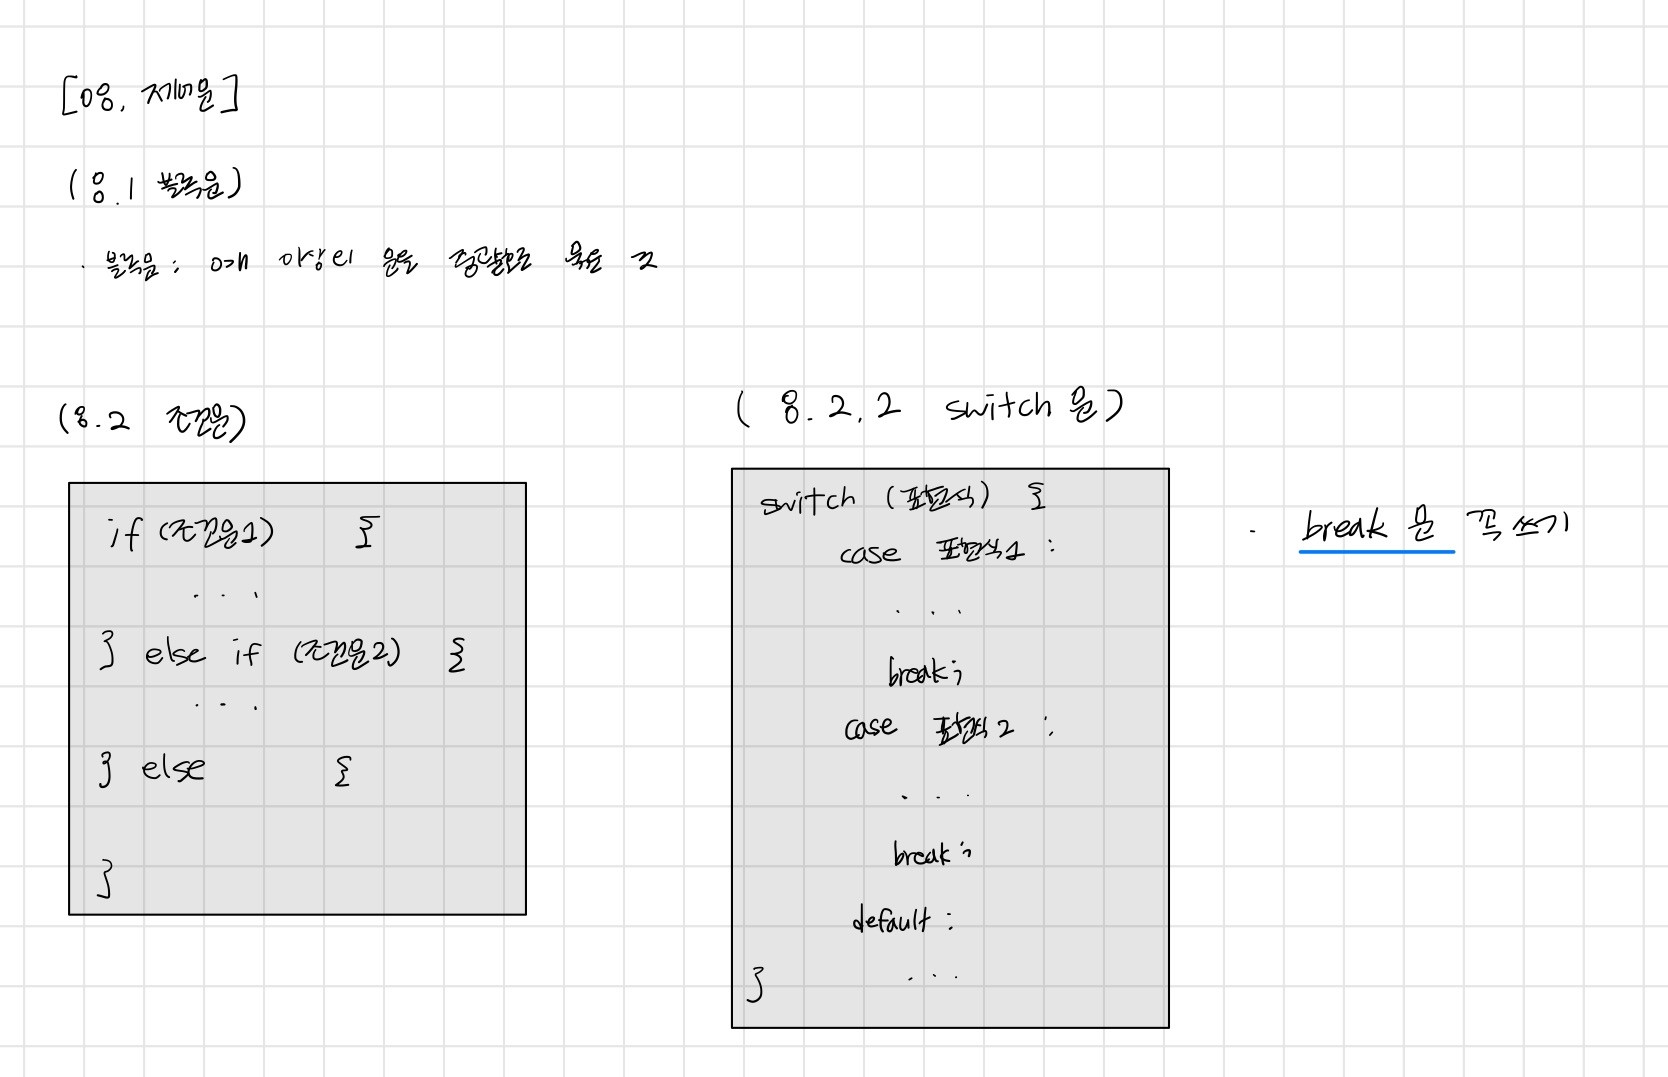 [08. 제어문]
(8.1 블록문)
· 블록문 : 0개 이상의 문을 중괄호로 묶은 것
(8.2 조건문)
if (조건문1) {
. . .
} else if (조건문2) {
. . .
} else {
}
(8.2.2 switch 문)
switch (표현식) {
case 표현식1 :
. . .
break;
case 표현식2 :
. . .
break;
default :
. . .
}
· break 문 꼭 쓰기